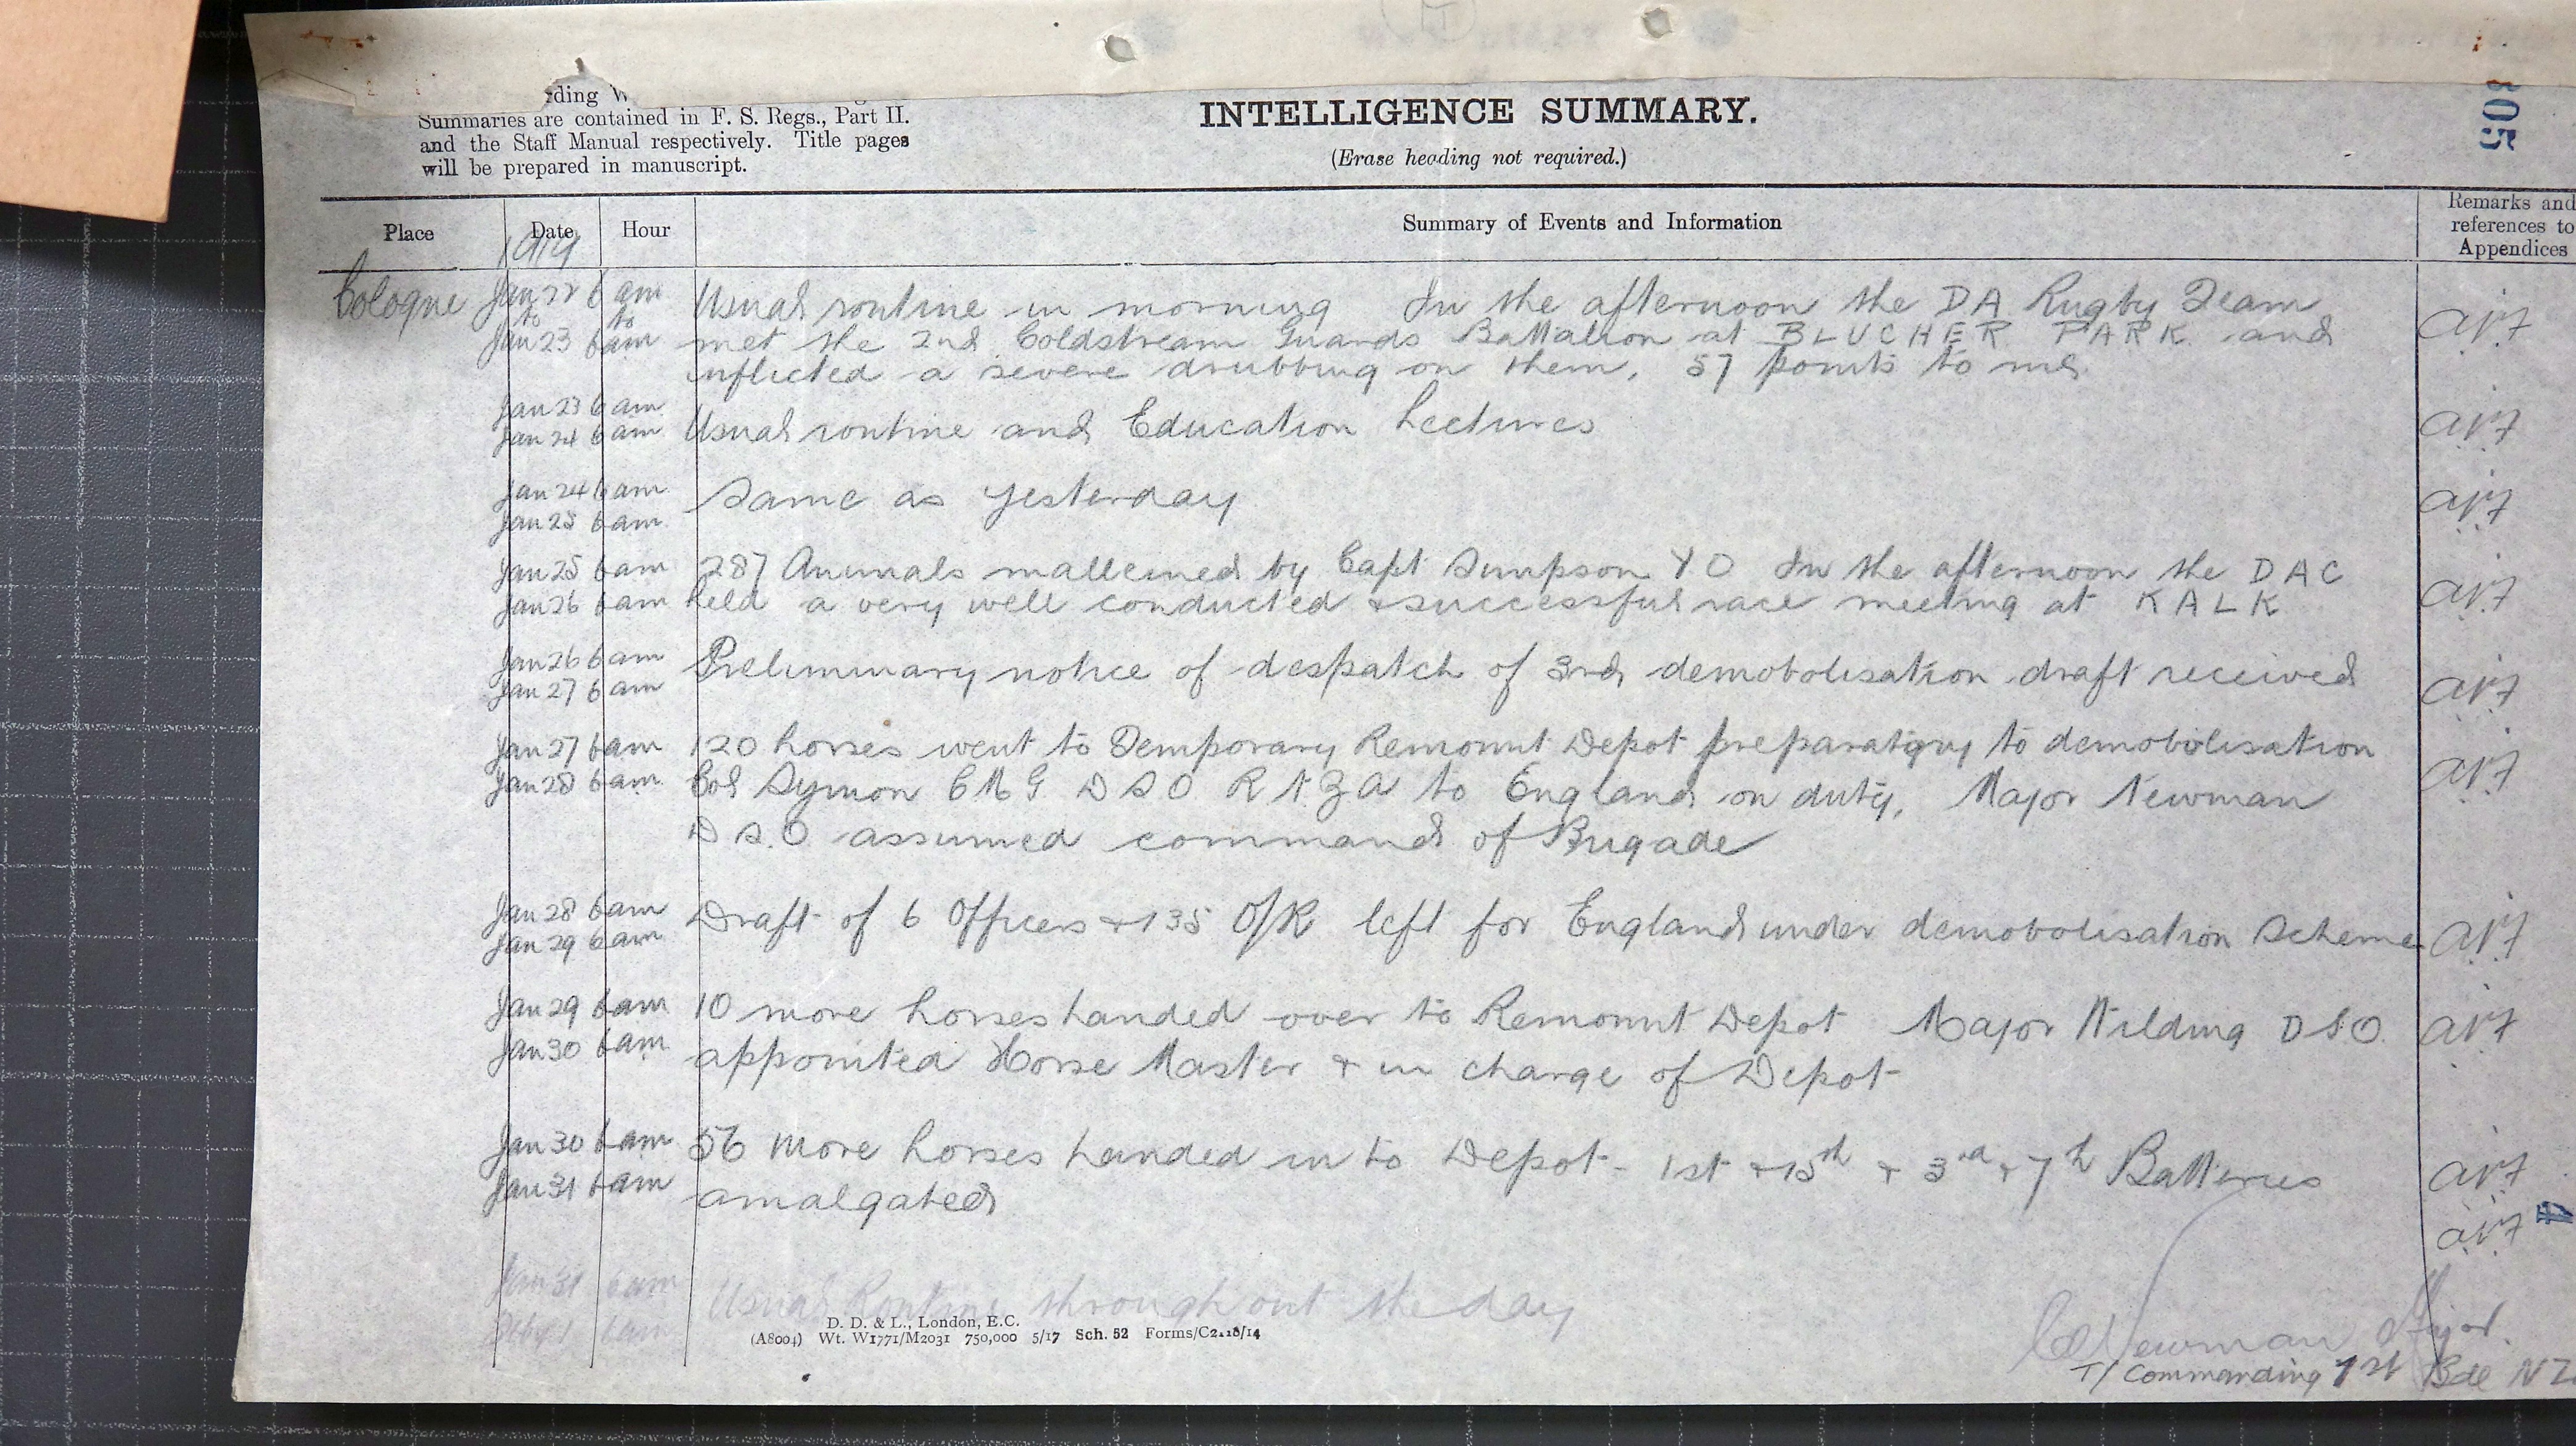 rding W
Summaries are contained in F. S. Regs., Part II.
and the Staff Manual respectively. Title pages
will be prepared in manuscript.
INTELLIGENCE SUMMARY.
(Erase heading not required.)
805
Place Date Hour Summary of Events and Information Remarks and
references to
Appendices
1919
Cologne Jan 22 6 am Usual routine in morning In the afternoon the DA Rugby Team
to to
Jan 23 6am met the 2nd Coldstream Guards Battalion at BLUCHER PARK and
inflicted a severe drubbing on them, 57 points to nil.
Jan 23 6 am
Jan 24 6 am Usual routine and Education Lectures
Jan 24 6 am Same as yesterday
Jan 25 6 am
Jan 25 6am 287 Animals malleined by Capt Simpson VO In the afternoon the DAC
Jan 26 6 am held a very well conducted & successful race meeting at KALK
Jan 26 6 am Preliminary notice of despatch of 3rd demobolisation draft received
Jan 27 6 am
Jan 27 6am 120 horses went to Temporary Remount Depot preparatory to demobolisation
Jan 28 6am Col Symon CMG DSO RNZA to England on duty, Major Newman
D S.O assumed command of Brigade
Jan 28 6am Draft of 6 Officers & 135 O/R left for England under demobolisation Scheme
Jan 29 6am
Jan 29 6am 10 more horses handed over to Remount Depot Major Wilding DSO.
Jan 30 6am appointed Horse Master & in charge of Depot
Jan 30 6am 56 more horses handed in to Depot - 1st & 15th & 3rd & 7th Batteries
Jan 31 6am amalgated
Jan 31 6am Usual Routine throughout the day
Feb 1 6am
D. D. & L., London, E.C.
(A8004) Wt. W1771/M2031 750,000 5/17 Sch. 52 Forms/C2118/14
Newman Major.
T/ Commanding 1st Bde NZ